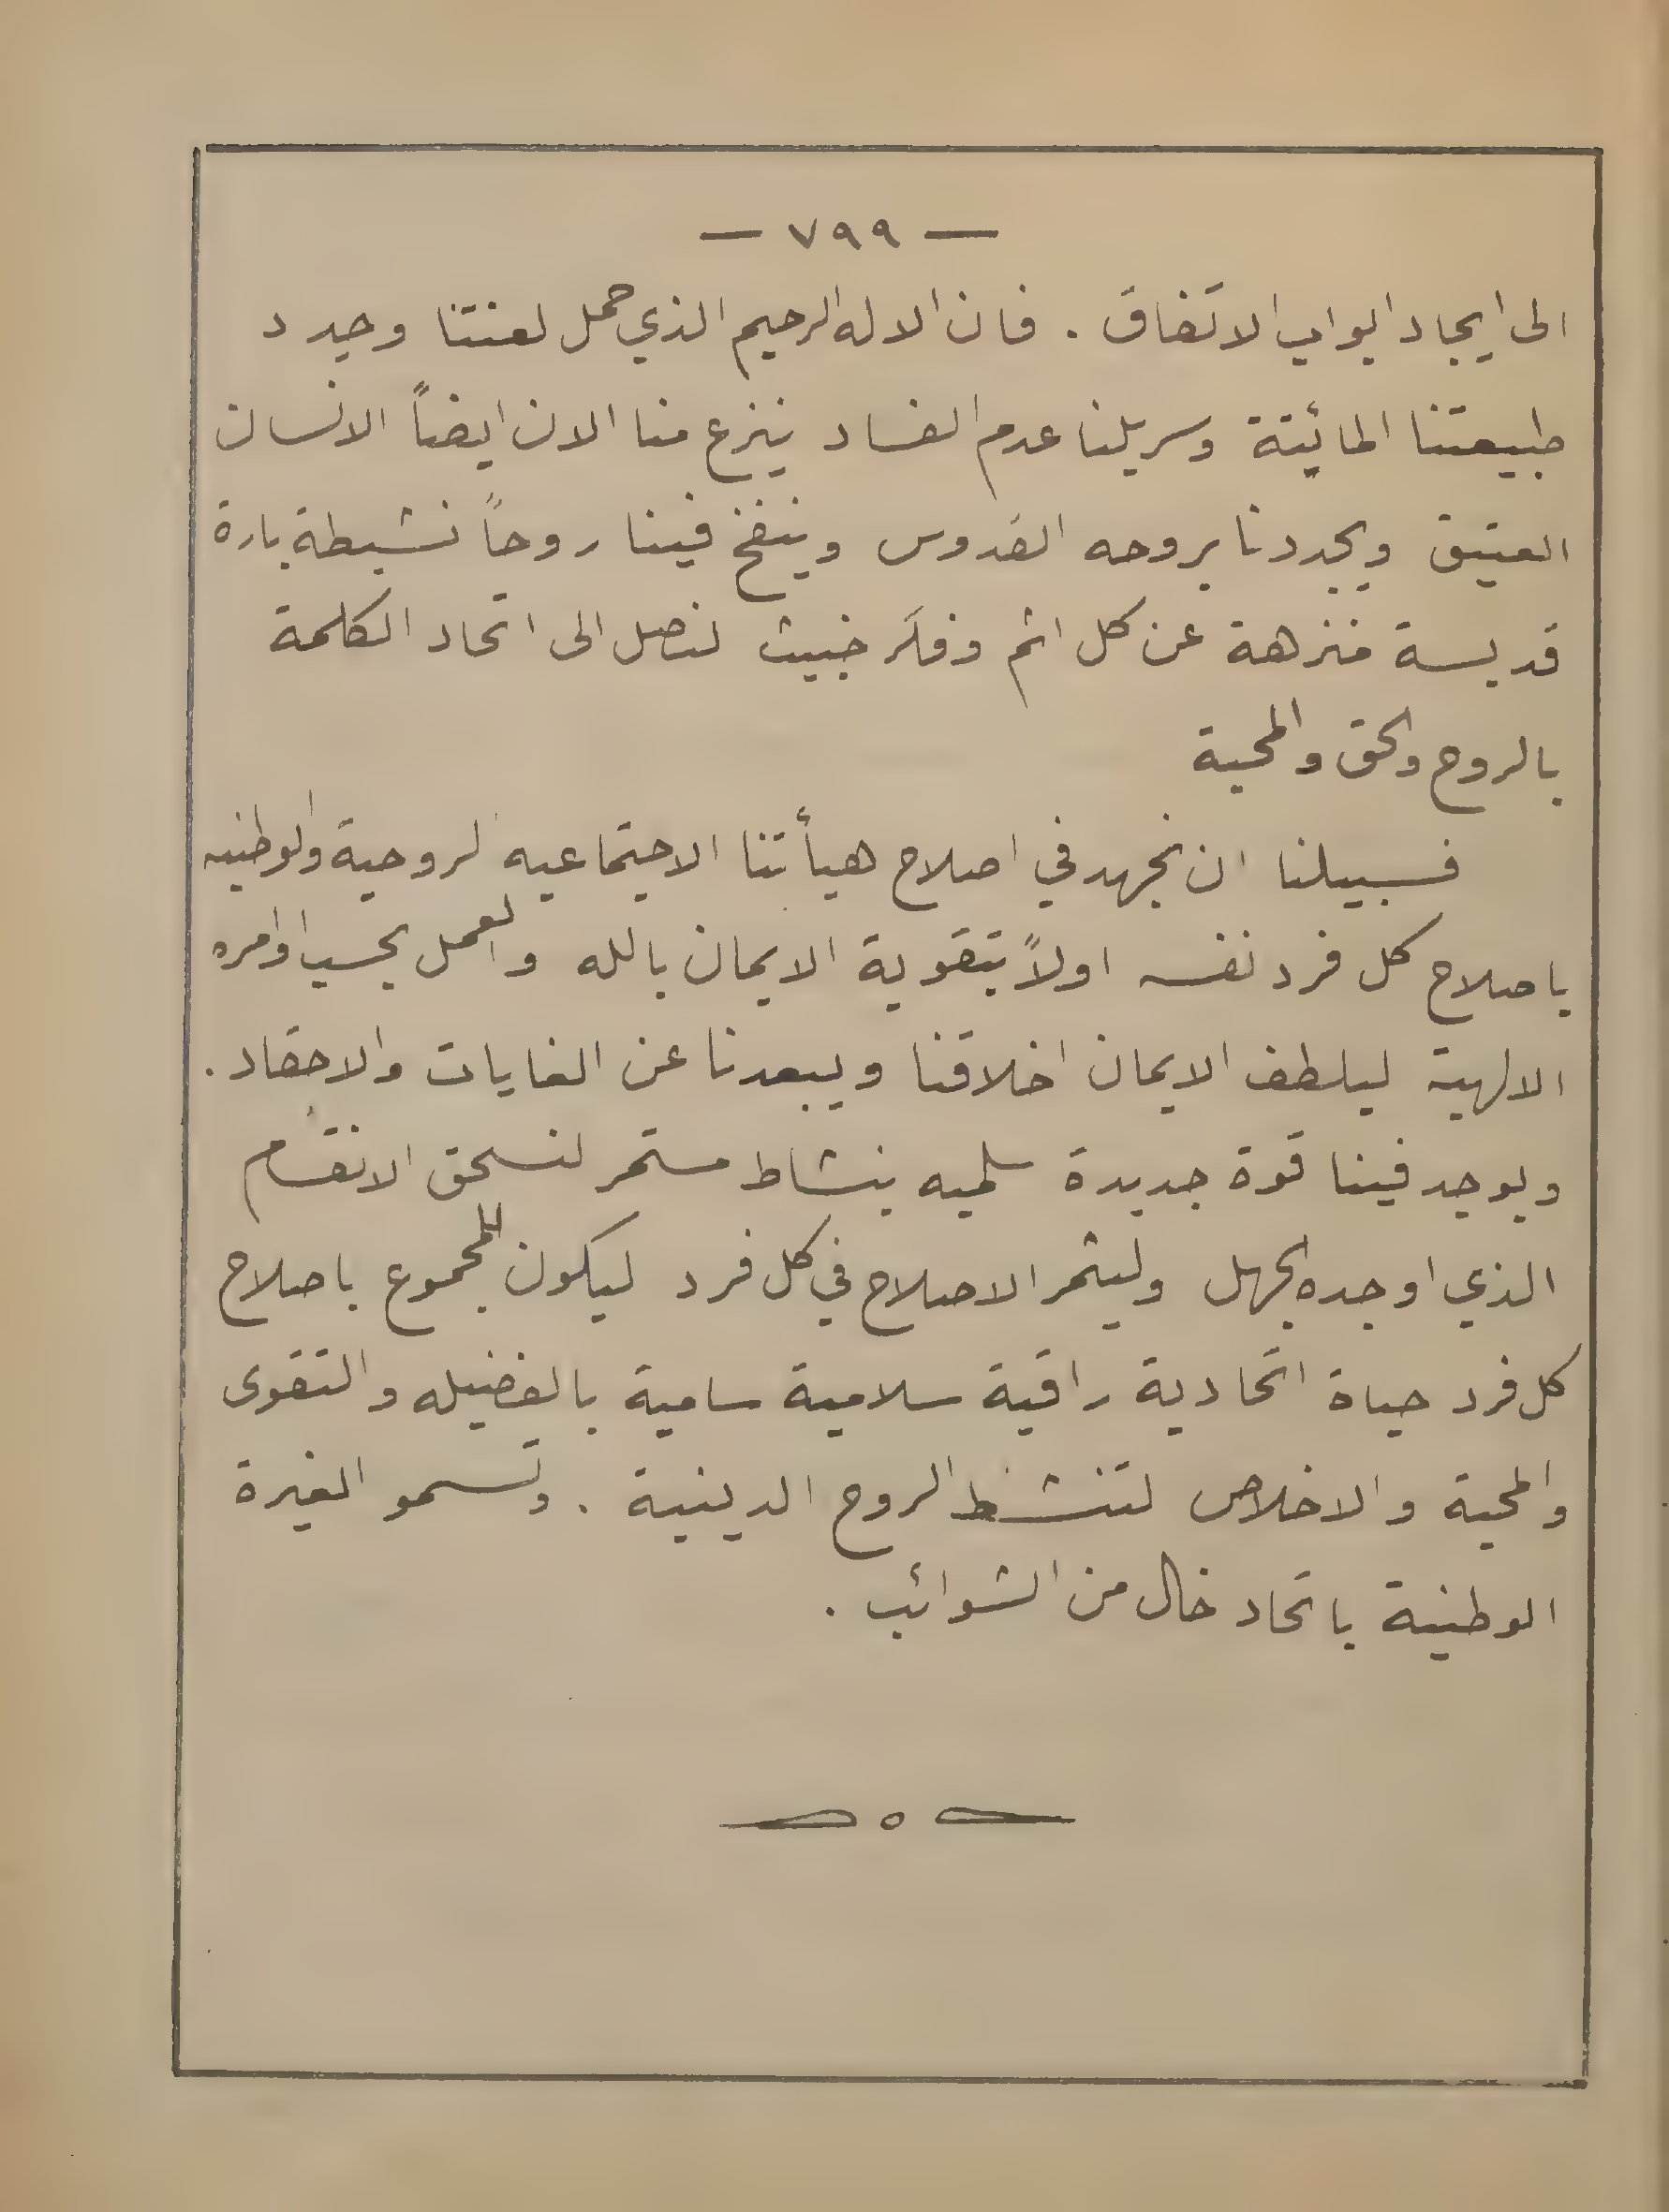 — ٧٩٩ —
الى ايجاد ابواب الاتفاق . فان الاله الرحيم الذي حمل لعنتنا وجدد
طبيعتنا المائتة وسربلنا عدم الفساد ينزع منا الان ايضاً الانسان
العتيق ويجددنا بروحه القدوس وينفخ فينا روحاً نشيطة بارة
قديسة منزهة عن كل اثم وفكر خبيث لنصل الى اتحاد الكلمة
بالروح والحق والمحبة
فسبيلنا ان نجهد في اصلاح هيأتنا الاجتماعيه الروحية والوطنيه
باصلاح كل فرد نفسه اولاً بتقوية الايمان بالله والعمل بحسب اوامره
الالهية ليلطف الايمان اخلاقنا ويبعدنا عن الغايات والاحقاد .
ويوجد فينا قوة جديدة سلميه بنشاط مستمر لنسحق الانقسام
الذي اوجده الجهل وليثمر الاصلاح في كل فرد ليكون للمجموع باصلاح
كل فرد حياة اتحادية راقية سلامية سامية بالفضيله والتقوى
والمحبة والاخلاص لتنشط الروح الدينية . وتسمو الغيرة
الوطنية باتحاد خال من الشوائب .